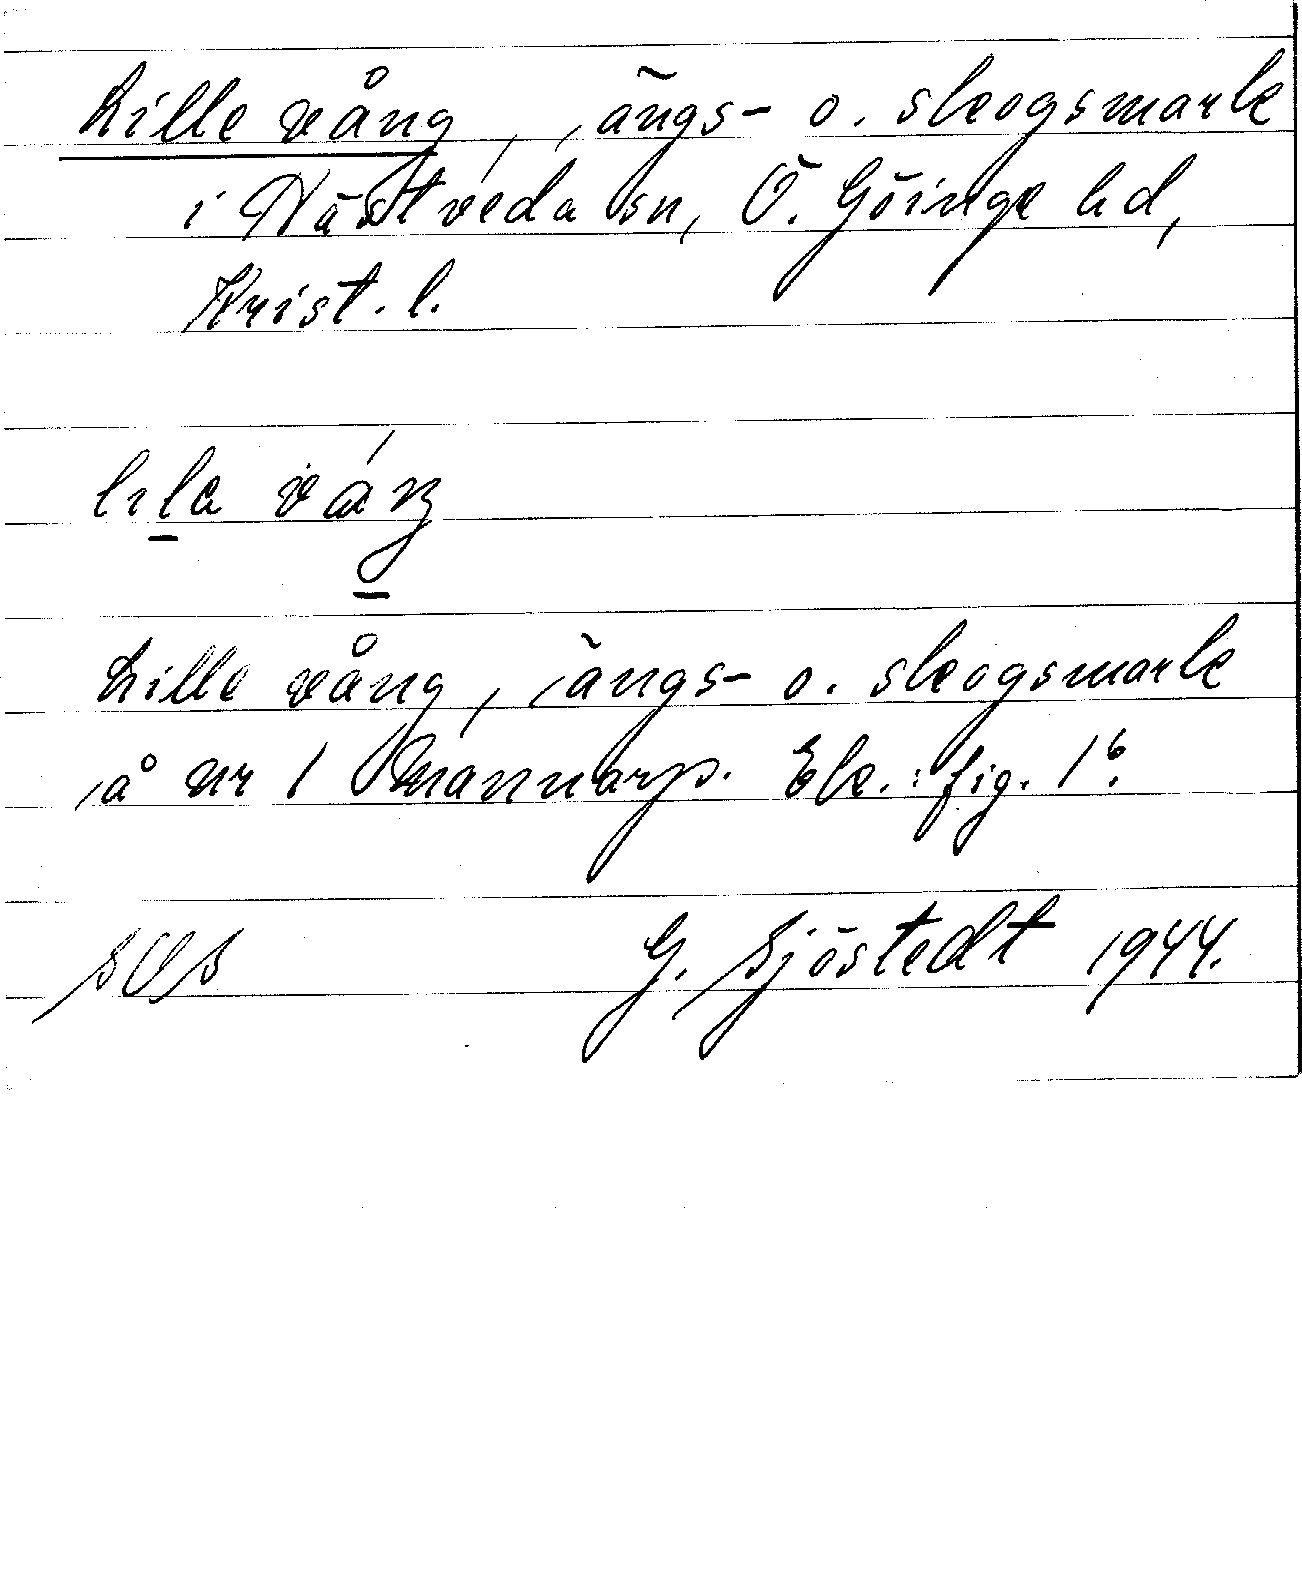 Lille vång, ängs- o. skogsmark
i Västveda sn, Ö. Göinge hd,
Krist. l.
Lille vång, ängs- o. skogsmark
å nr 1 Mannarp. Ek.: fig. 1⁶.
SOS G. Sjöstedt 1944.